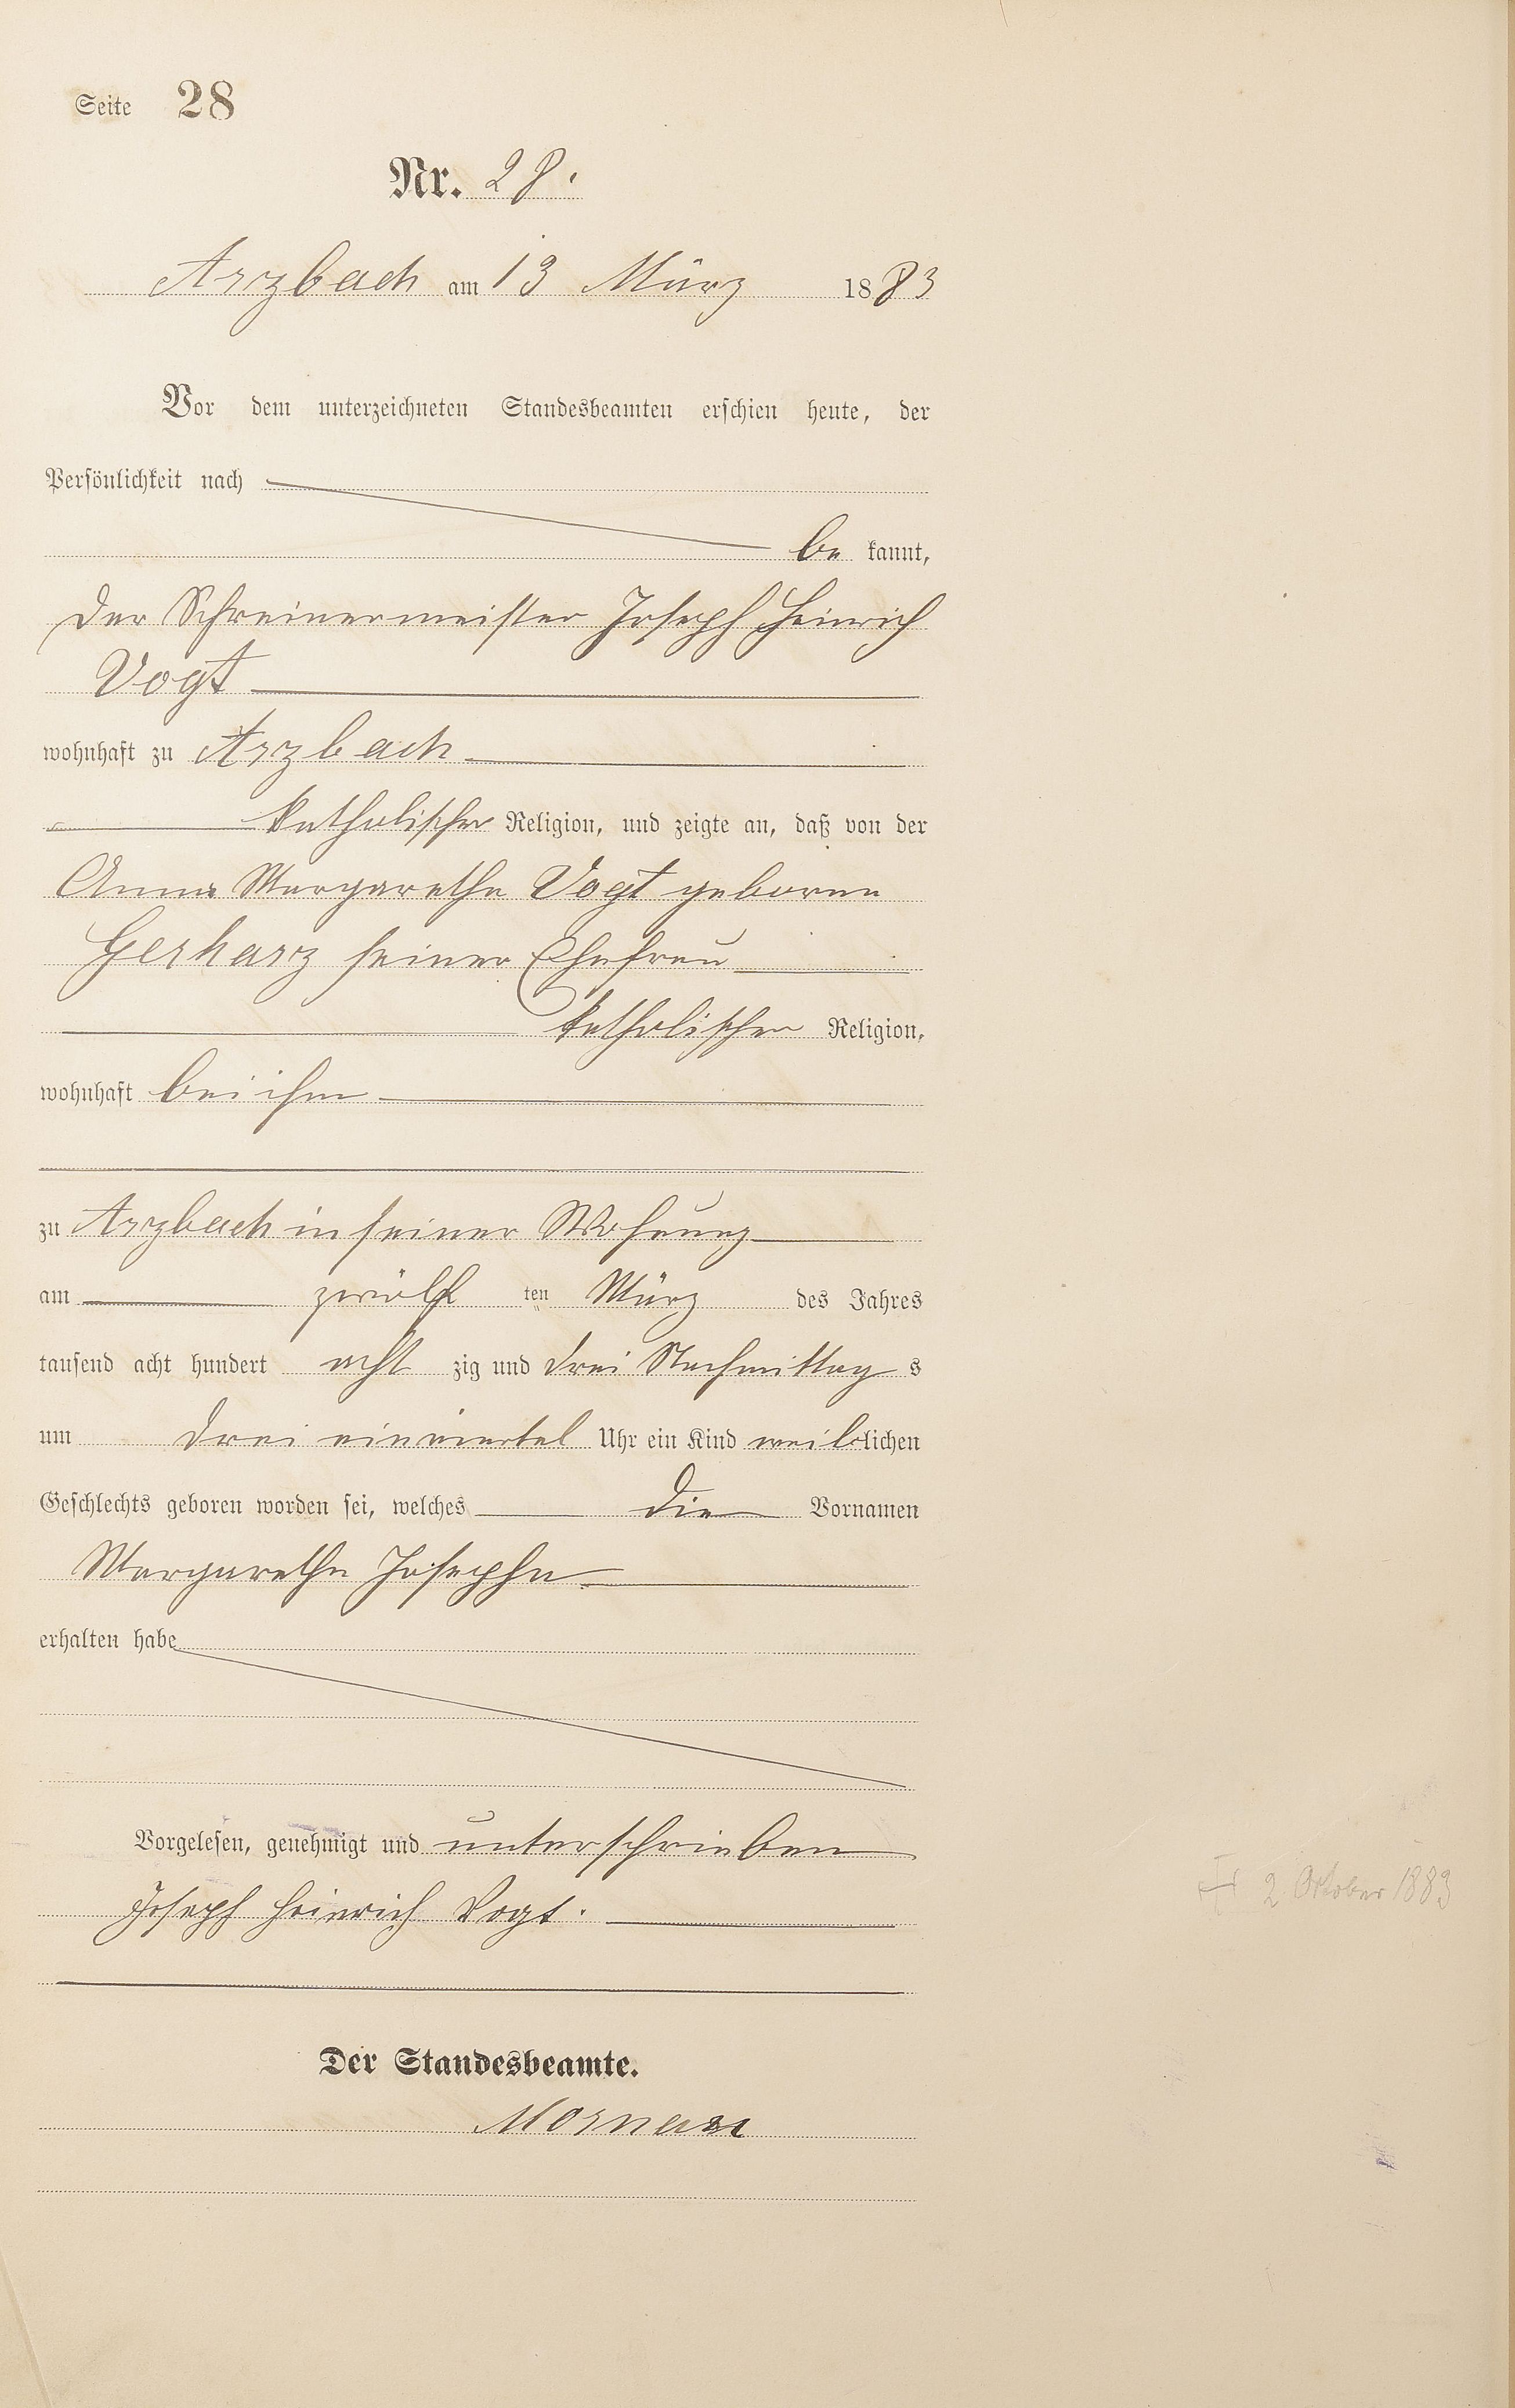 Seite 28
Nr. 28.
Arzbach am 13 März 1883
Vor dem unterzeichneten Standesbeamten erschien heute, der
Persönlichkeit nach
be kannt,
der Schreinermeister Joseph Heinrich
Vogt
wohnhaft zu Arzbach
katholischer Religion, und zeigte an, daß von der
Anna Margaretha Vogt geborne
Gerharz seiner Ehefrau
katholischer Religion,
wohnhaft bei ihm
zu Arzbach in seiner Wohnung
am zwölf ten März des Jahres
tausend acht hundert acht zig und drei Nachmittag s
um drei einviertel Uhr ein Kind weiblichen
Geschlechts geboren worden sei, welches die Vornamen
Margaretha Josepha
erhalten habe
Vorgelesen, genehmigt und unterschrieben
Joseph Heinrich Vogt.
† 2 Oktober 1883
Der Standesbeamte.